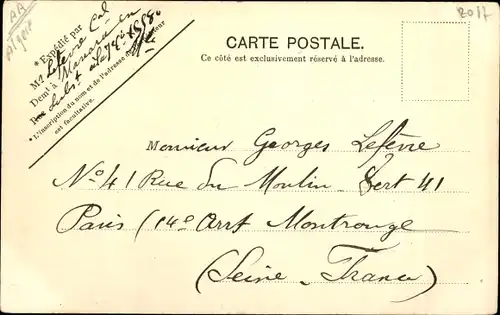 AA
Alger
2017
* Expédié par
M. Lefevre Cal
Demt à
Rue
* L'inscription du nom et de l'adresse de l'expéditeur
est facultative.
CARTE POSTALE.
Ce côté est exclusivement réservé à l'adresse.
Monsieur Georges Lefèvre
No 41 Rue du Moulin Vert 41
Paris (14e Arrt Montrouge
(Seine - France)